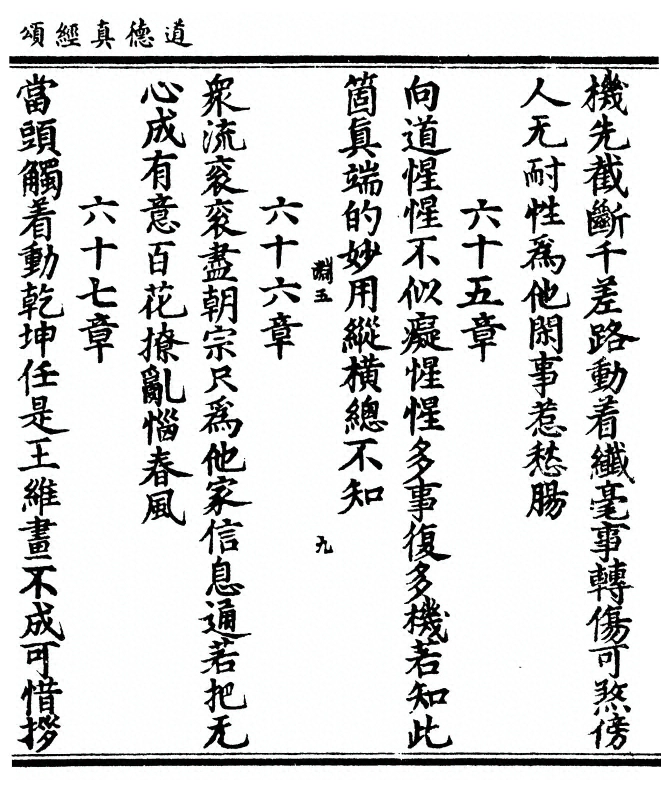 道德真經頌
機先截斷千差路動着纖毫事轉傷可煞傍
人无耐性爲他閑事惹愁腸
六十五章
向道惺惺不似癡惺惺多事復多機若知此
箇眞端的妙用縱橫總不知
淵五
九
六十六章
衆流衮衮盡朝宗只爲他家信息通若把无
心成有意百花撩亂惱春風
六十七章
當頭觸着動乾坤任是王維畫不成可惜拶